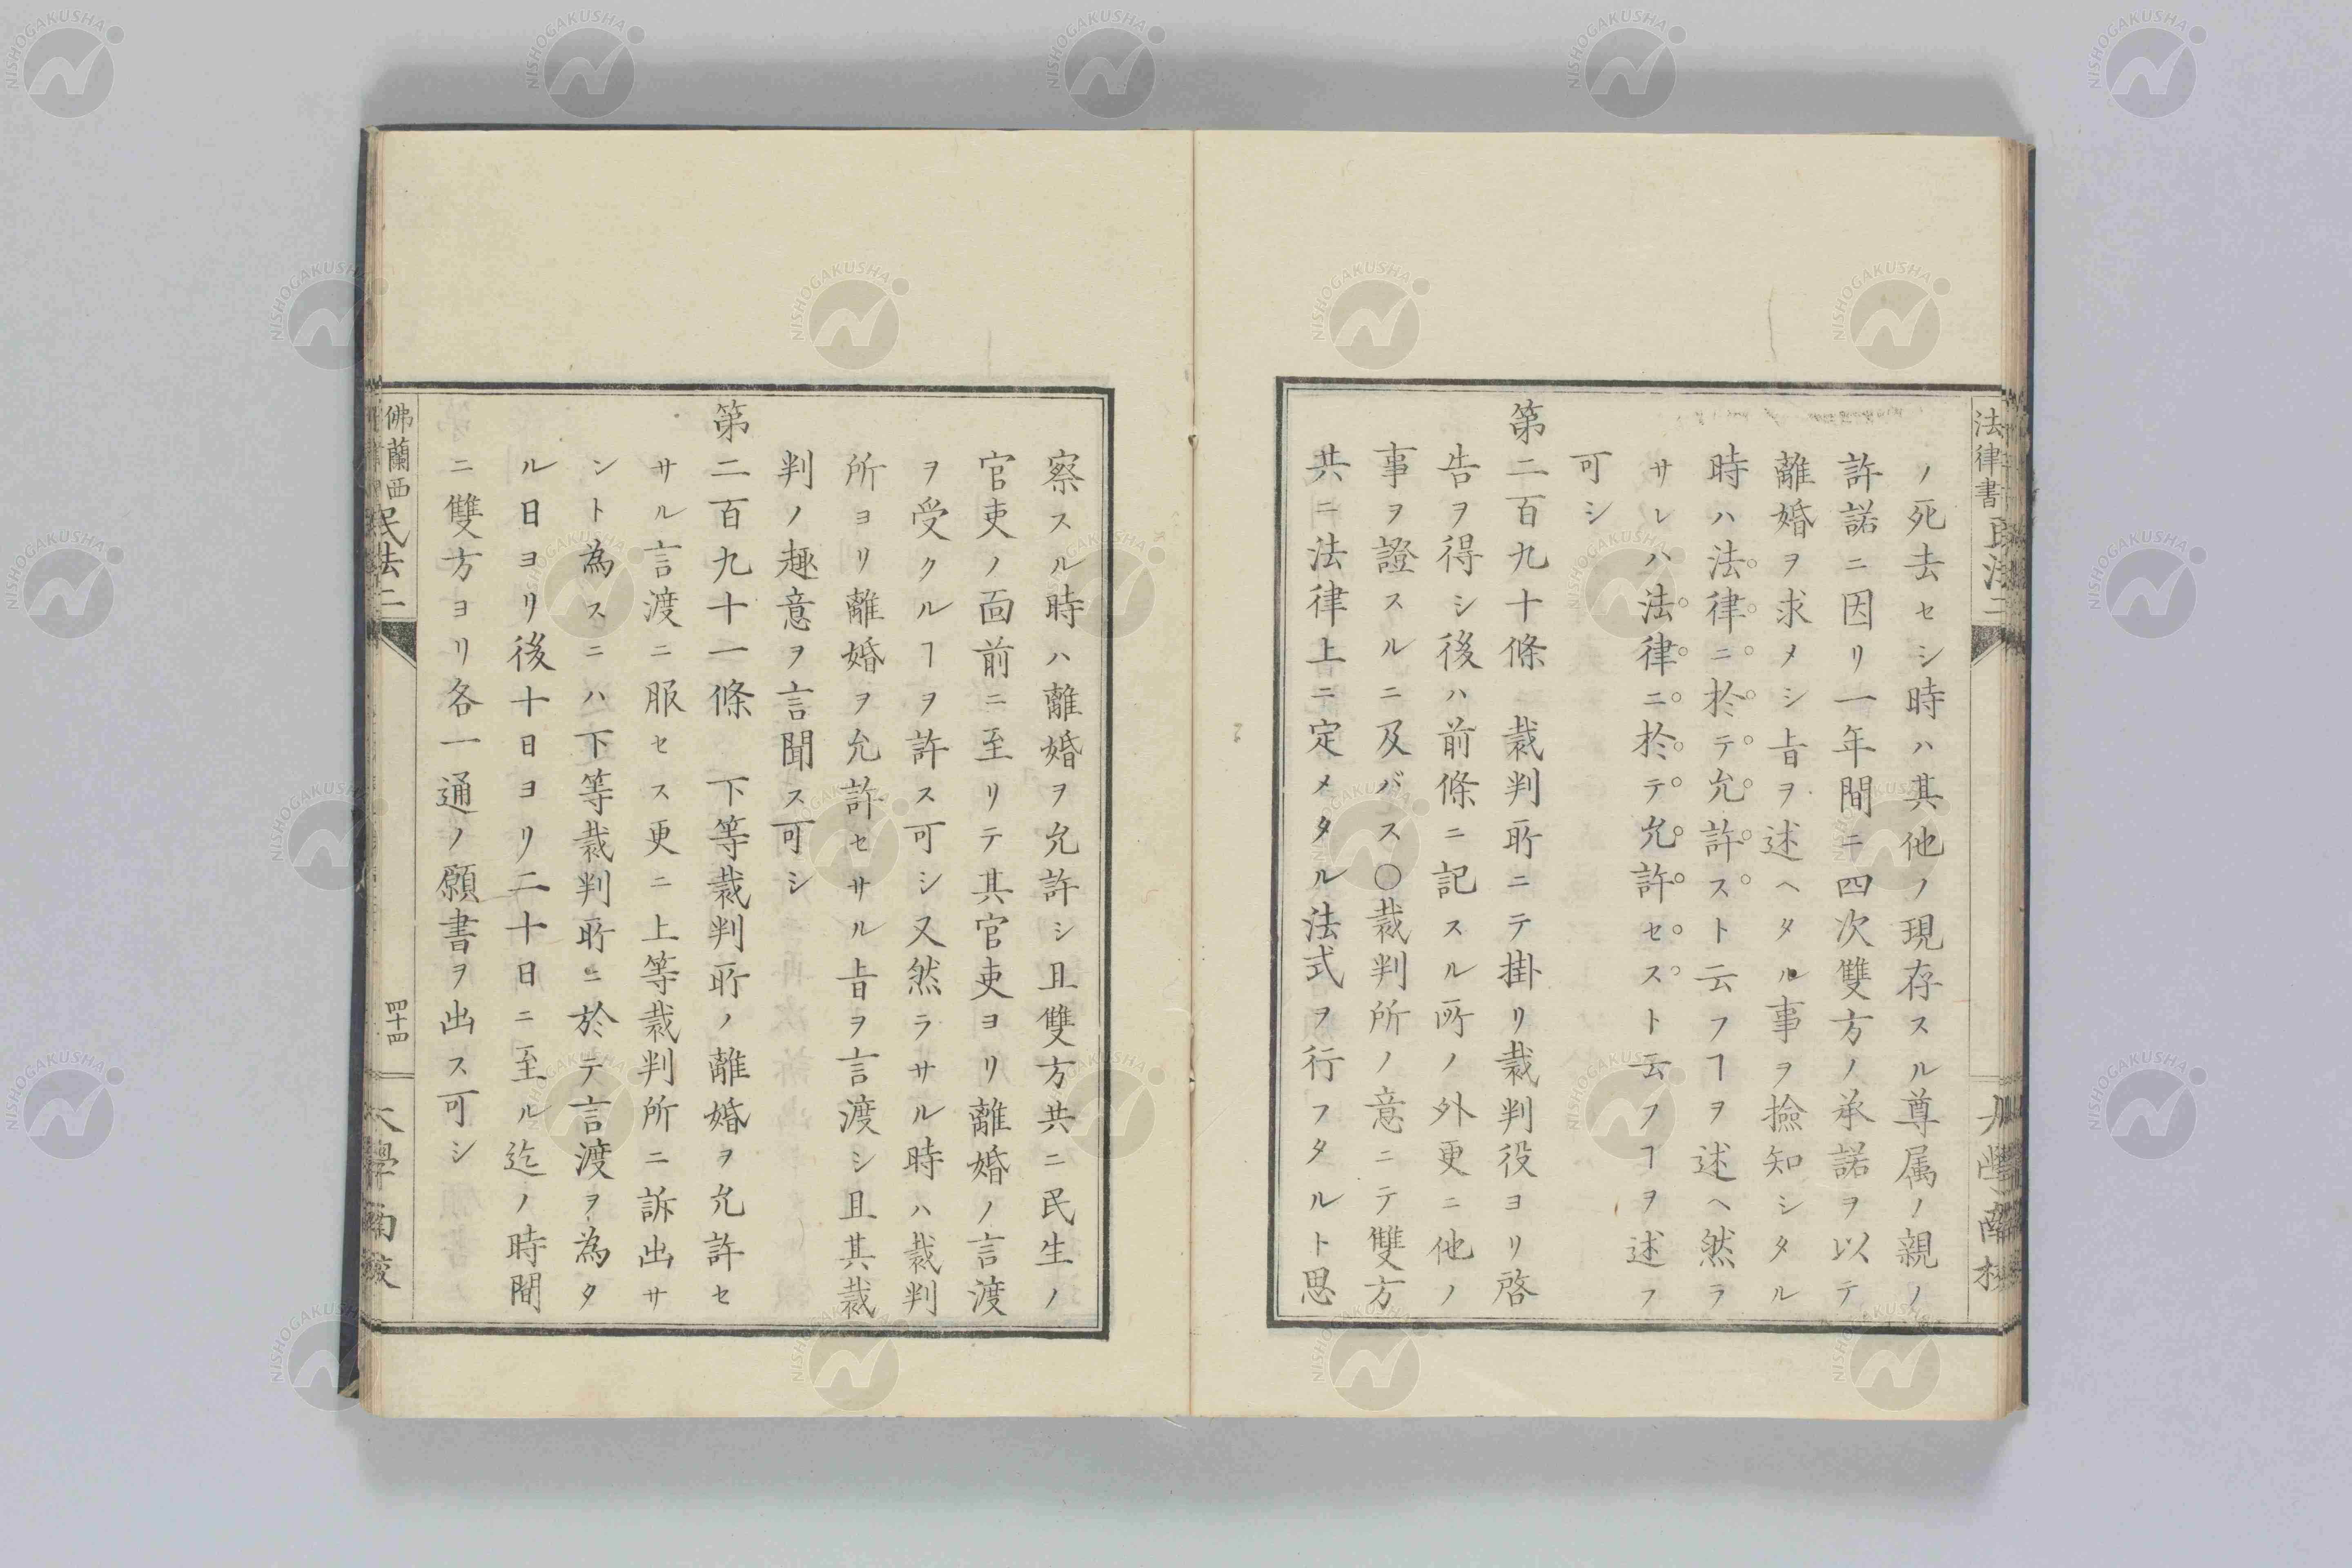 法律書民法二
ノ死去セシ時ハ其他ノ現存スル尊属ノ親ノ
許諾ニ因リ一年間ニ四次雙方ノ承諾ヲ以テ
離婚ヲ求メシ旨ヲ述ヘタル事ヲ撿知シタル
時ハ法律ニ於テ允許スト云フヿヲ述ヘ然ラ
サレハ法律ニ於テ允許セスト云フヿヲ述フ
可シ
第二百九十條 裁判所ニテ掛リ裁判役ヨリ啓
告ヲ得シ後ハ前條ニ記スル所ノ外更ニ他ノ
事ヲ證スルニ及バス〇裁判所ノ意ニテ雙方
共ニ法律上ニ定メタル法式ヲ行フタルト思
察スル時ハ離婚ヲ允許シ且雙方共ニ民生ノ
官吏ノ面前ニ至リテ其官吏ヨリ離婚ノ言渡
ヲ受クルヿヲ許ス可シ又然ラサル時ハ裁判
所ヨリ離婚ヲ允許セサル旨ヲ言渡シ且其裁
判ノ趣意ヲ言聞ス可シ
第二百九十一條 下等裁判所ノ離婚ヲ允許セ
サル言渡ニ服セス更ニ上等裁判所ニ訴出サ
ント為スニハ下等裁判所ニ於テ言渡ヲ為タ
ル日ヨリ後十日ヨリ二十日ニ至ル迄ノ時間
ニ雙方ヨリ各一通ノ願書ヲ出ス可シ
佛蘭西民法二
四十四
大學南校
NISHOGAKUSHA